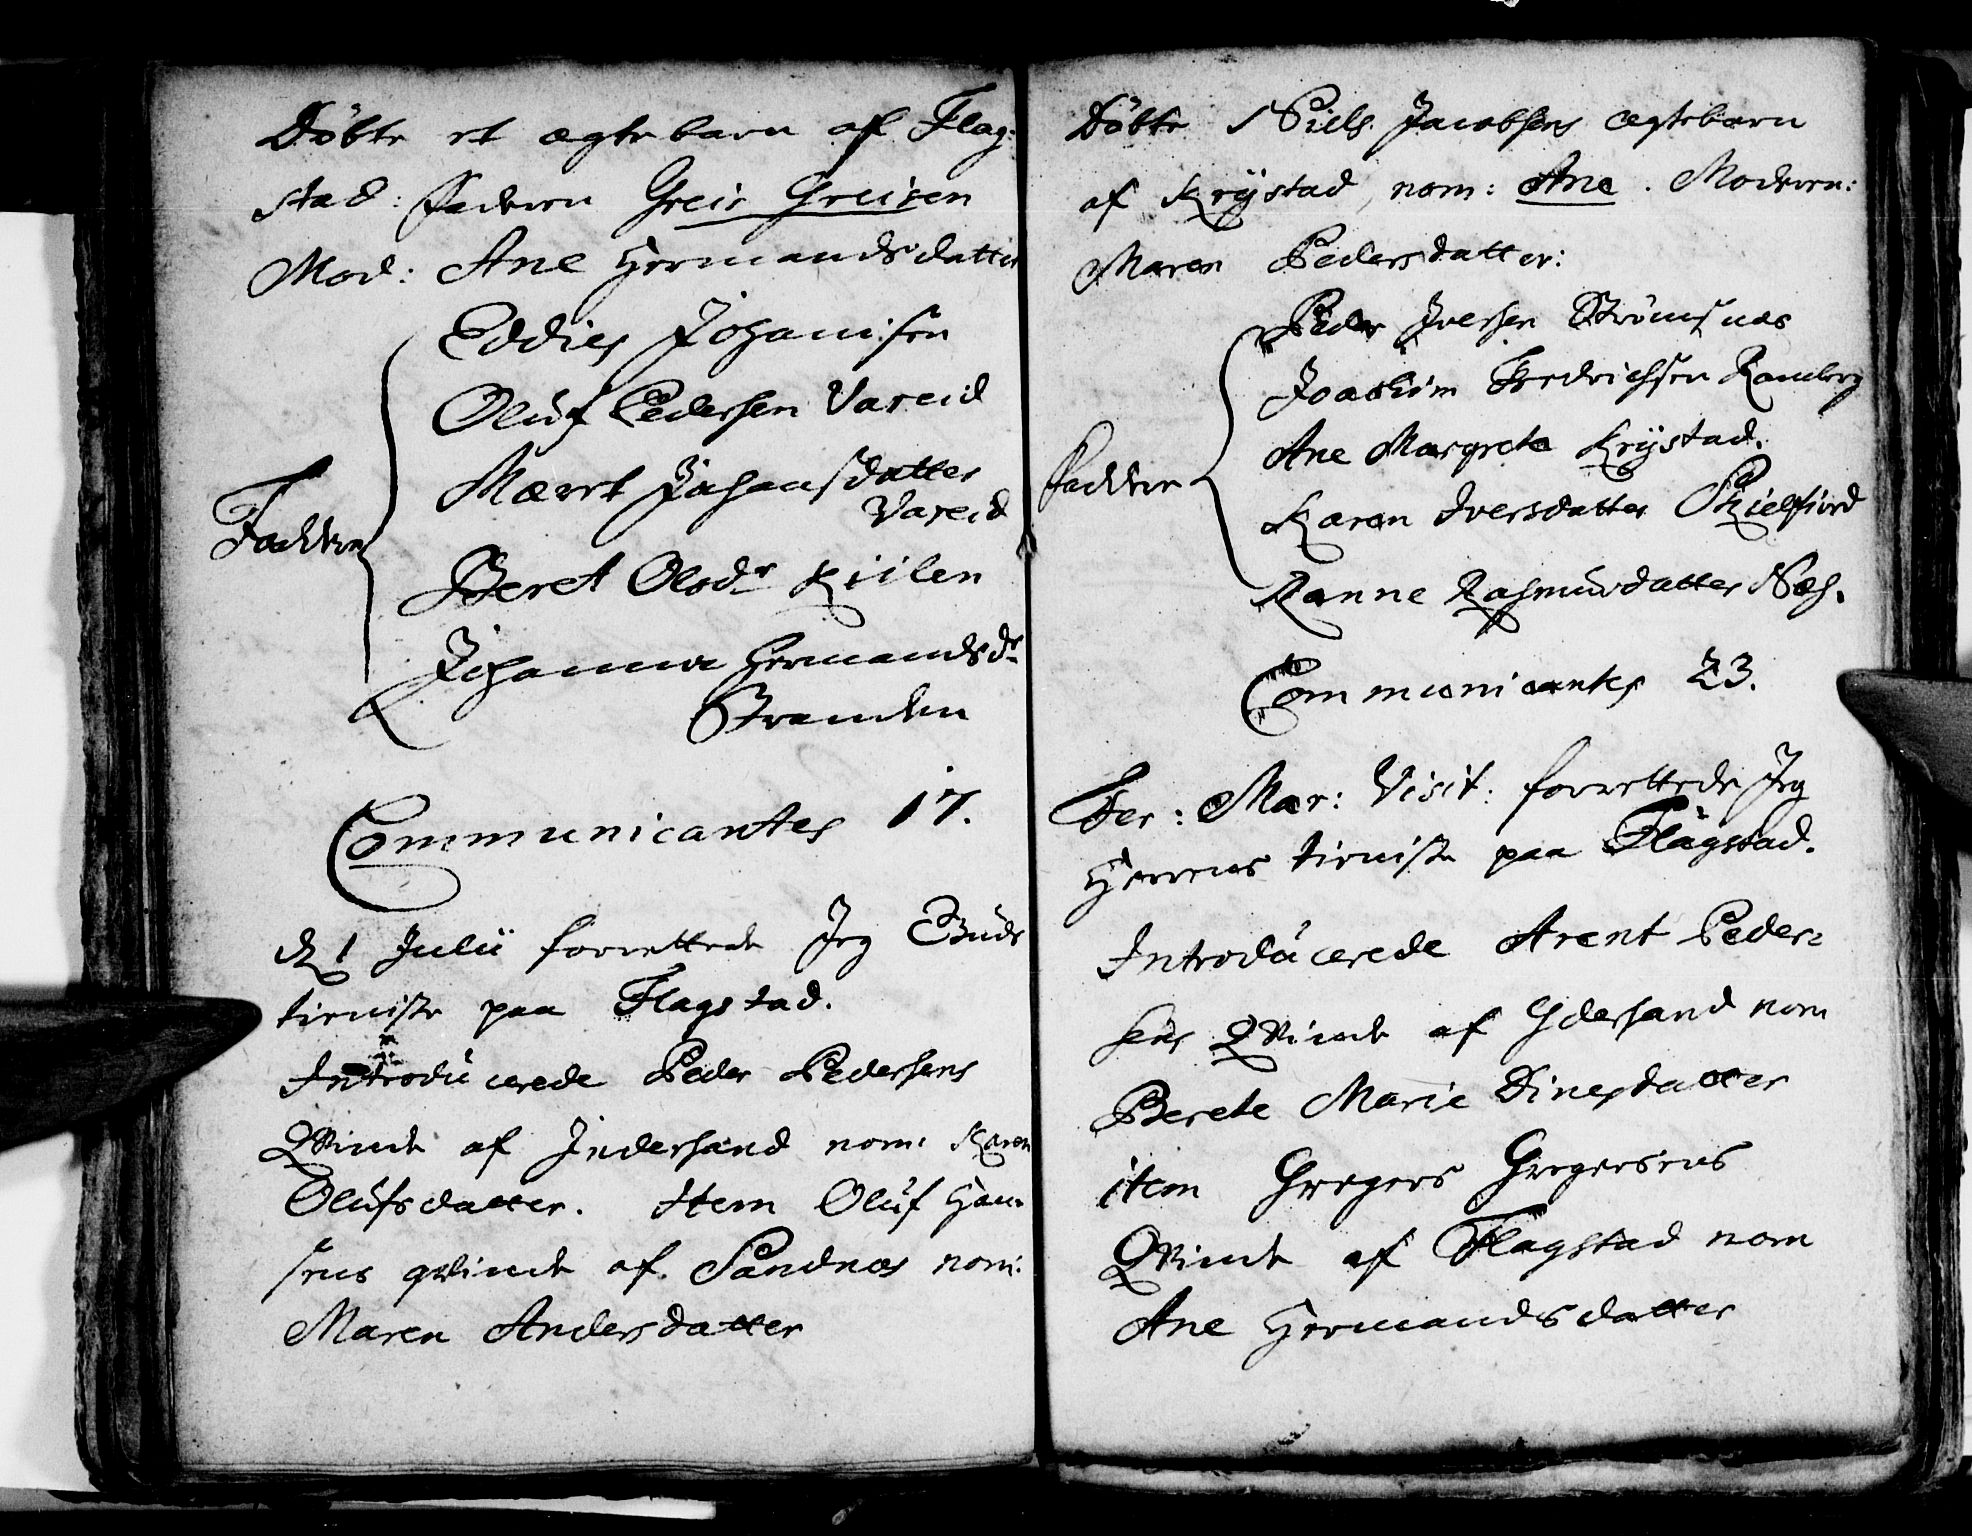 Döbte et ægte barn af Flag-
stad: Faderen Greis Greisen
Mod: Ane Hermandsdatter
Eddies Johansen
Oluf Pedersen Vareid
Maret Johansdatter
Vareid
Faddere
Beret Olsdr Kiilen
Johanna Hermandsdr
Stranden
Communicantes 17.
d 1 Julii forrettede Jeg Guds
tieniste paa Flagstad.
Introducerede Peder Pedersens
Qvinde af Indersand nom: Karen
Olufsdatter. Item Oluf Han-
sens qvinde af Sandnæs nom:
Maren Andersdatter
Döbte Niels Jacobsens ægtebarn
af Krÿstad, nom: Ane. Moderen:
Maren Pedersdatter:
Peder Iversen Strömsnæs
Joachim Fredrichsen Ramberg
Ane Margrete Krÿstad.
Faddere
Karen Iversdatter Skielfiord
Ranne Rasmusdatter Næs.
Communicantes 23.
Fer: Mar: Visit: forrettede Jeg
Herrens tieniste paa Flagstad.
Introducerede Arent Peder-
sens Qvinde af Ydersand nom
Berete Marie Dinesdatter
item Gregers Gregersens
Qvinde af Flagstad nom
Ane Hermandsdatter